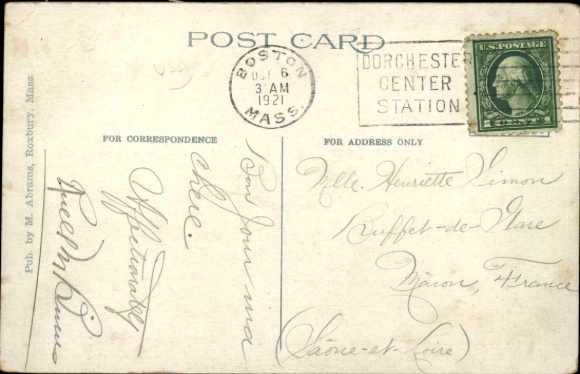 POST CARD
BOSTON
OCT 6
3 AM
1921
MASS.
DORCHESTER
CENTER
STATION
U.S. POSTAGE
1 CENT 1
FOR CORRESPONDENCE
FOR ADDRESS ONLY
Bon Jour ma
chere.
Affectionately
Mlle. Henriette Simon
Buffet-de-Gare
Mâcon, France
(Saône-et-Loire)
Pub. by M. Abrams, Roxbury, Mass.